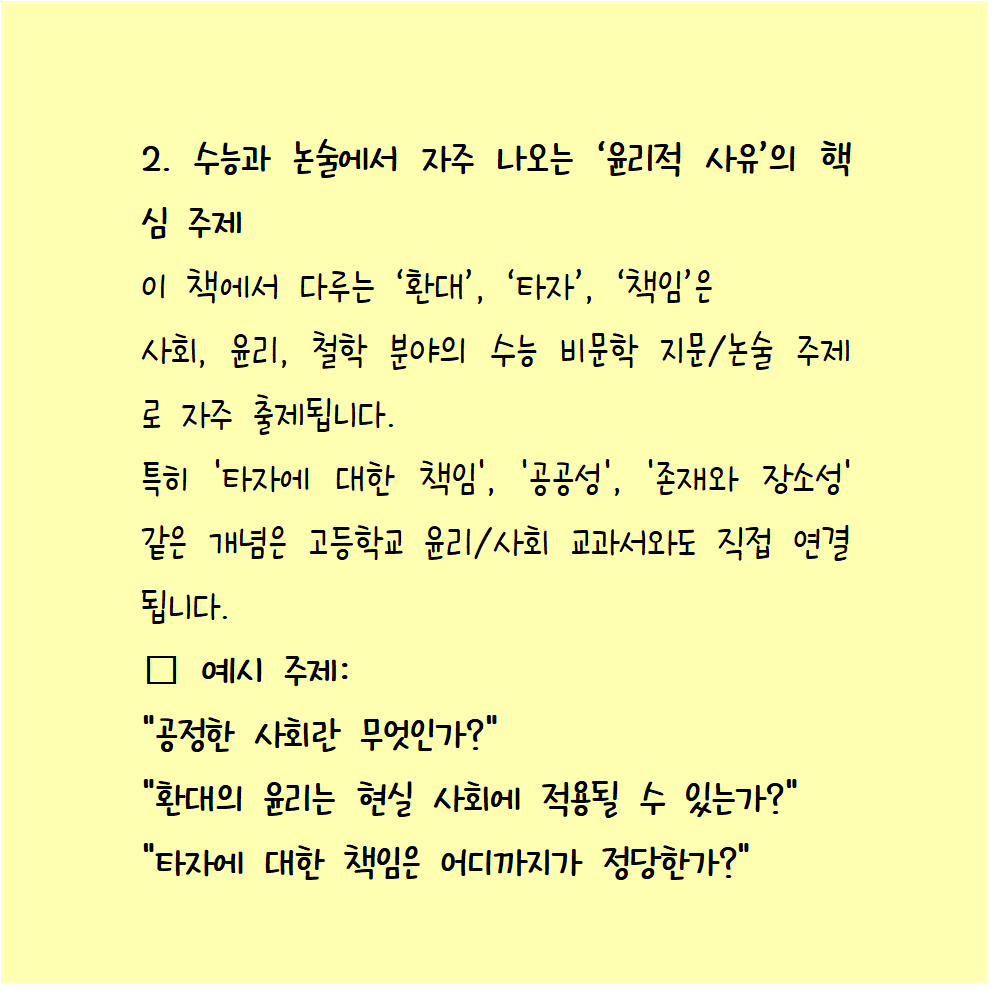 2. 수능과 논술에서 자주 나오는 ‘윤리적 사유’의 핵
심 주제
이 책에서 다루는 ‘환대’, ‘타자’, ‘책임’은
사회, 윤리, 철학 분야의 수능 비문학 지문/논술 주제
로 자주 출제됩니다.
특히 '타자에 대한 책임', '공공성', '존재와 장소성'
같은 개념은 고등학교 윤리/사회 교과서와도 직접 연결
됩니다.
□ 예시 주제:
"공정한 사회란 무엇인가?"
"환대의 윤리는 현실 사회에 적용될 수 있는가?"
"타자에 대한 책임은 어디까지가 정당한가?"